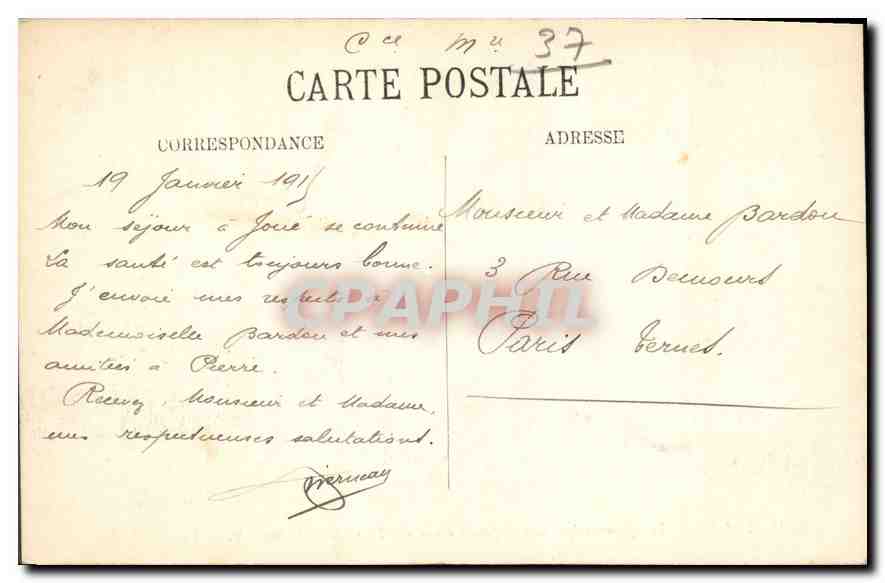 Cce Mre 37
CARTE POSTALE
CORRESPONDANCE
ADRESSE
19 Janvier 1915
Mon séjour à Joué se continue
La santé est toujours bonne.
J'envoie mes respects à
Mademoiselle Bardou et mes
amitiés à Pierre.
Recevez, Monsieur et Madame,
mes respectueuses salutations.
Monsieur et Madame Bardou
3 Rue Demours
Paris Ternes.
CPAPHIL